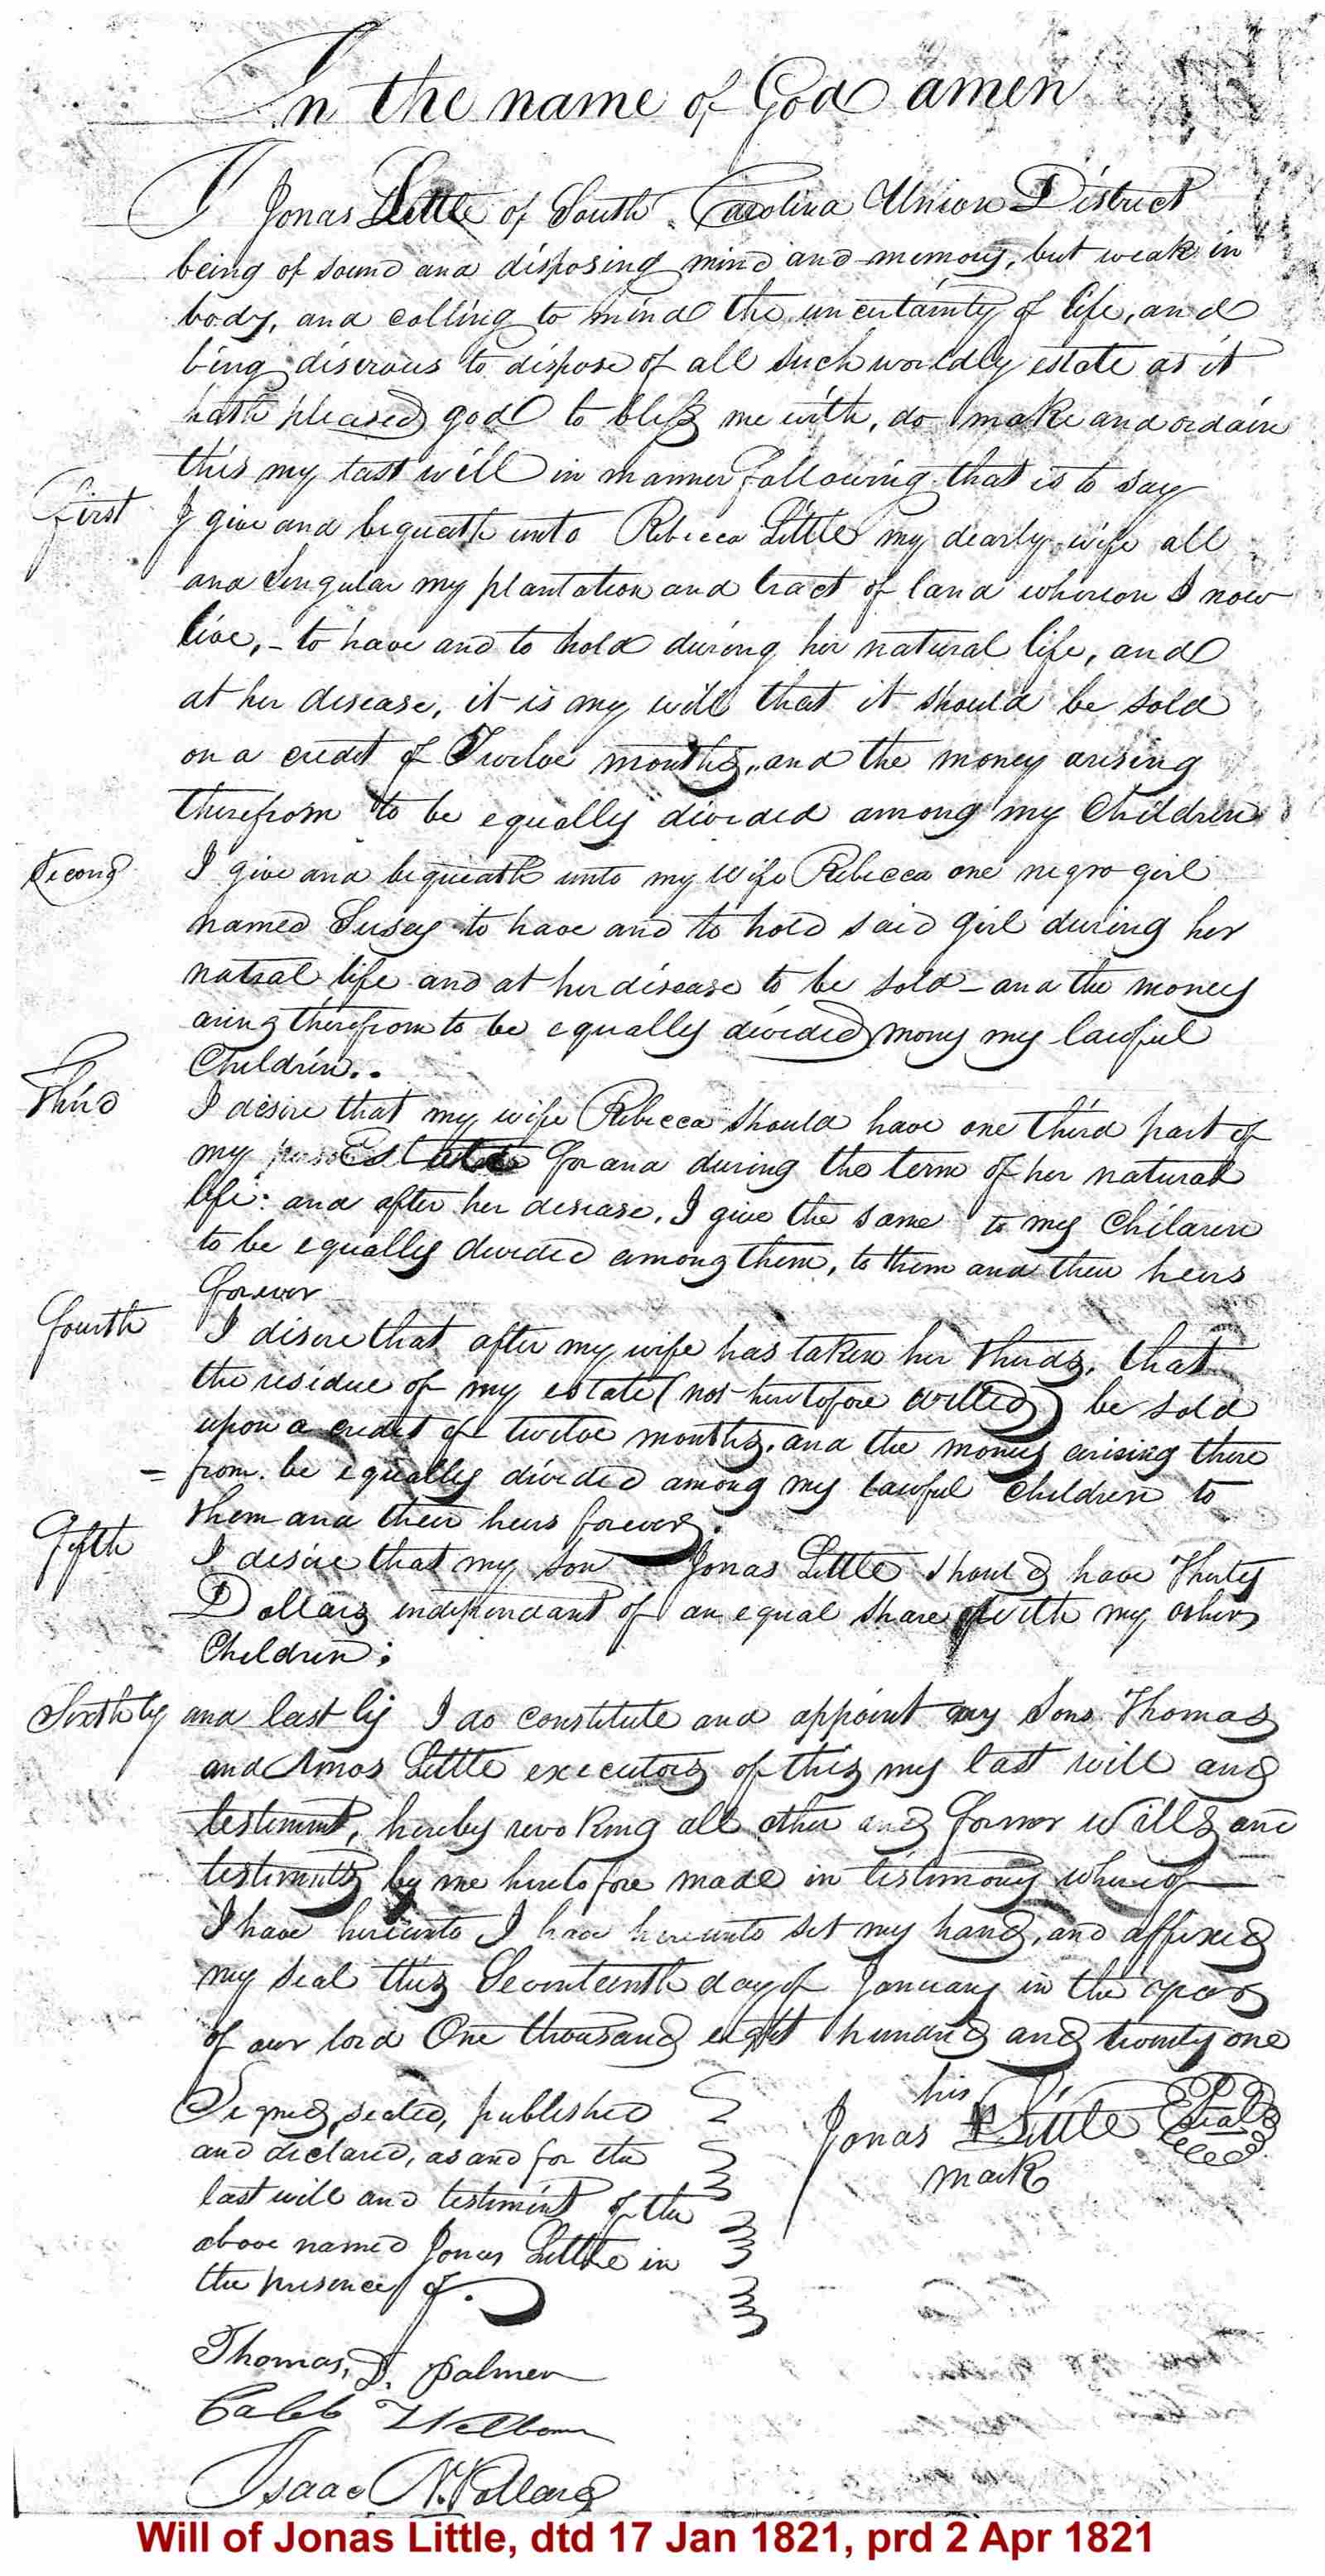 In the name of God amen
I Jonas Little of South Carolina Union District
being of sound and disposing mind and memory, but weak in
body, and calling to mind the uncertainty of life, and
bing diserous to dispose of all such worldly estate as it
hath pleased god to bless me with, do make and ordain
this my last will in manner following that is to say
First I give and bequeath unto Rebecca Little my dearly wife all
and Singular my plantation and tract of land whereon I now
live, - to have and to hold during her natural life, and
at her disease, it is my will that it should be sold
on a credit of Twelve months, and the money arising
therefrom to be equally divided among my Children
Second I give and bequeath unto my wife Rebecca one negro girl
named Susey to have and to hold said girl during her
natral life and at her disease to be sold - and the money
aring therefrom to be equally divided mong my lawful
Children..
Third I desire that my wife Rebecca should have one third part of
my Estate for and during the term of her natural
life: and after her disease, I give the same to my Children
to be equally divided among them, to them and their heirs
forever
Fourth I disire that after my wife has taken her thirds, that
the residue of my estate (not heretofore willed) be sold
upon a credit of twelve months. and the money arising there
= from. be equally divided among my lawful Children to
them and their heirs forever.
Fifth I desire that my son Jonas Little should have Thirty
Dollars independant of an equal share with my other
Children;
Sixthly and last ly I do constitute and appoint my Sons Thomas
and Amos Little executors of this my last will and
testiment, hereby revoking all other and former Wills and
testiments by me heretofore made in testimony whereof
I have hereunto I have hereunto set my hand, and affixed
my seal this Seventeenth day of January in the year
of our lord One thousand eight hundred and twenty one
Signed, sealed, published
and declared, as and for the
last will and testiment of the
above named Jonas Little in
the presence of.
his
Jonas Little Seal
mark
Thomas, D. Palmer
Caleb Welbourn
Isaac N. Pollard
Will of Jonas Little, dtd 17 Jan 1821, prd 2 Apr 1821